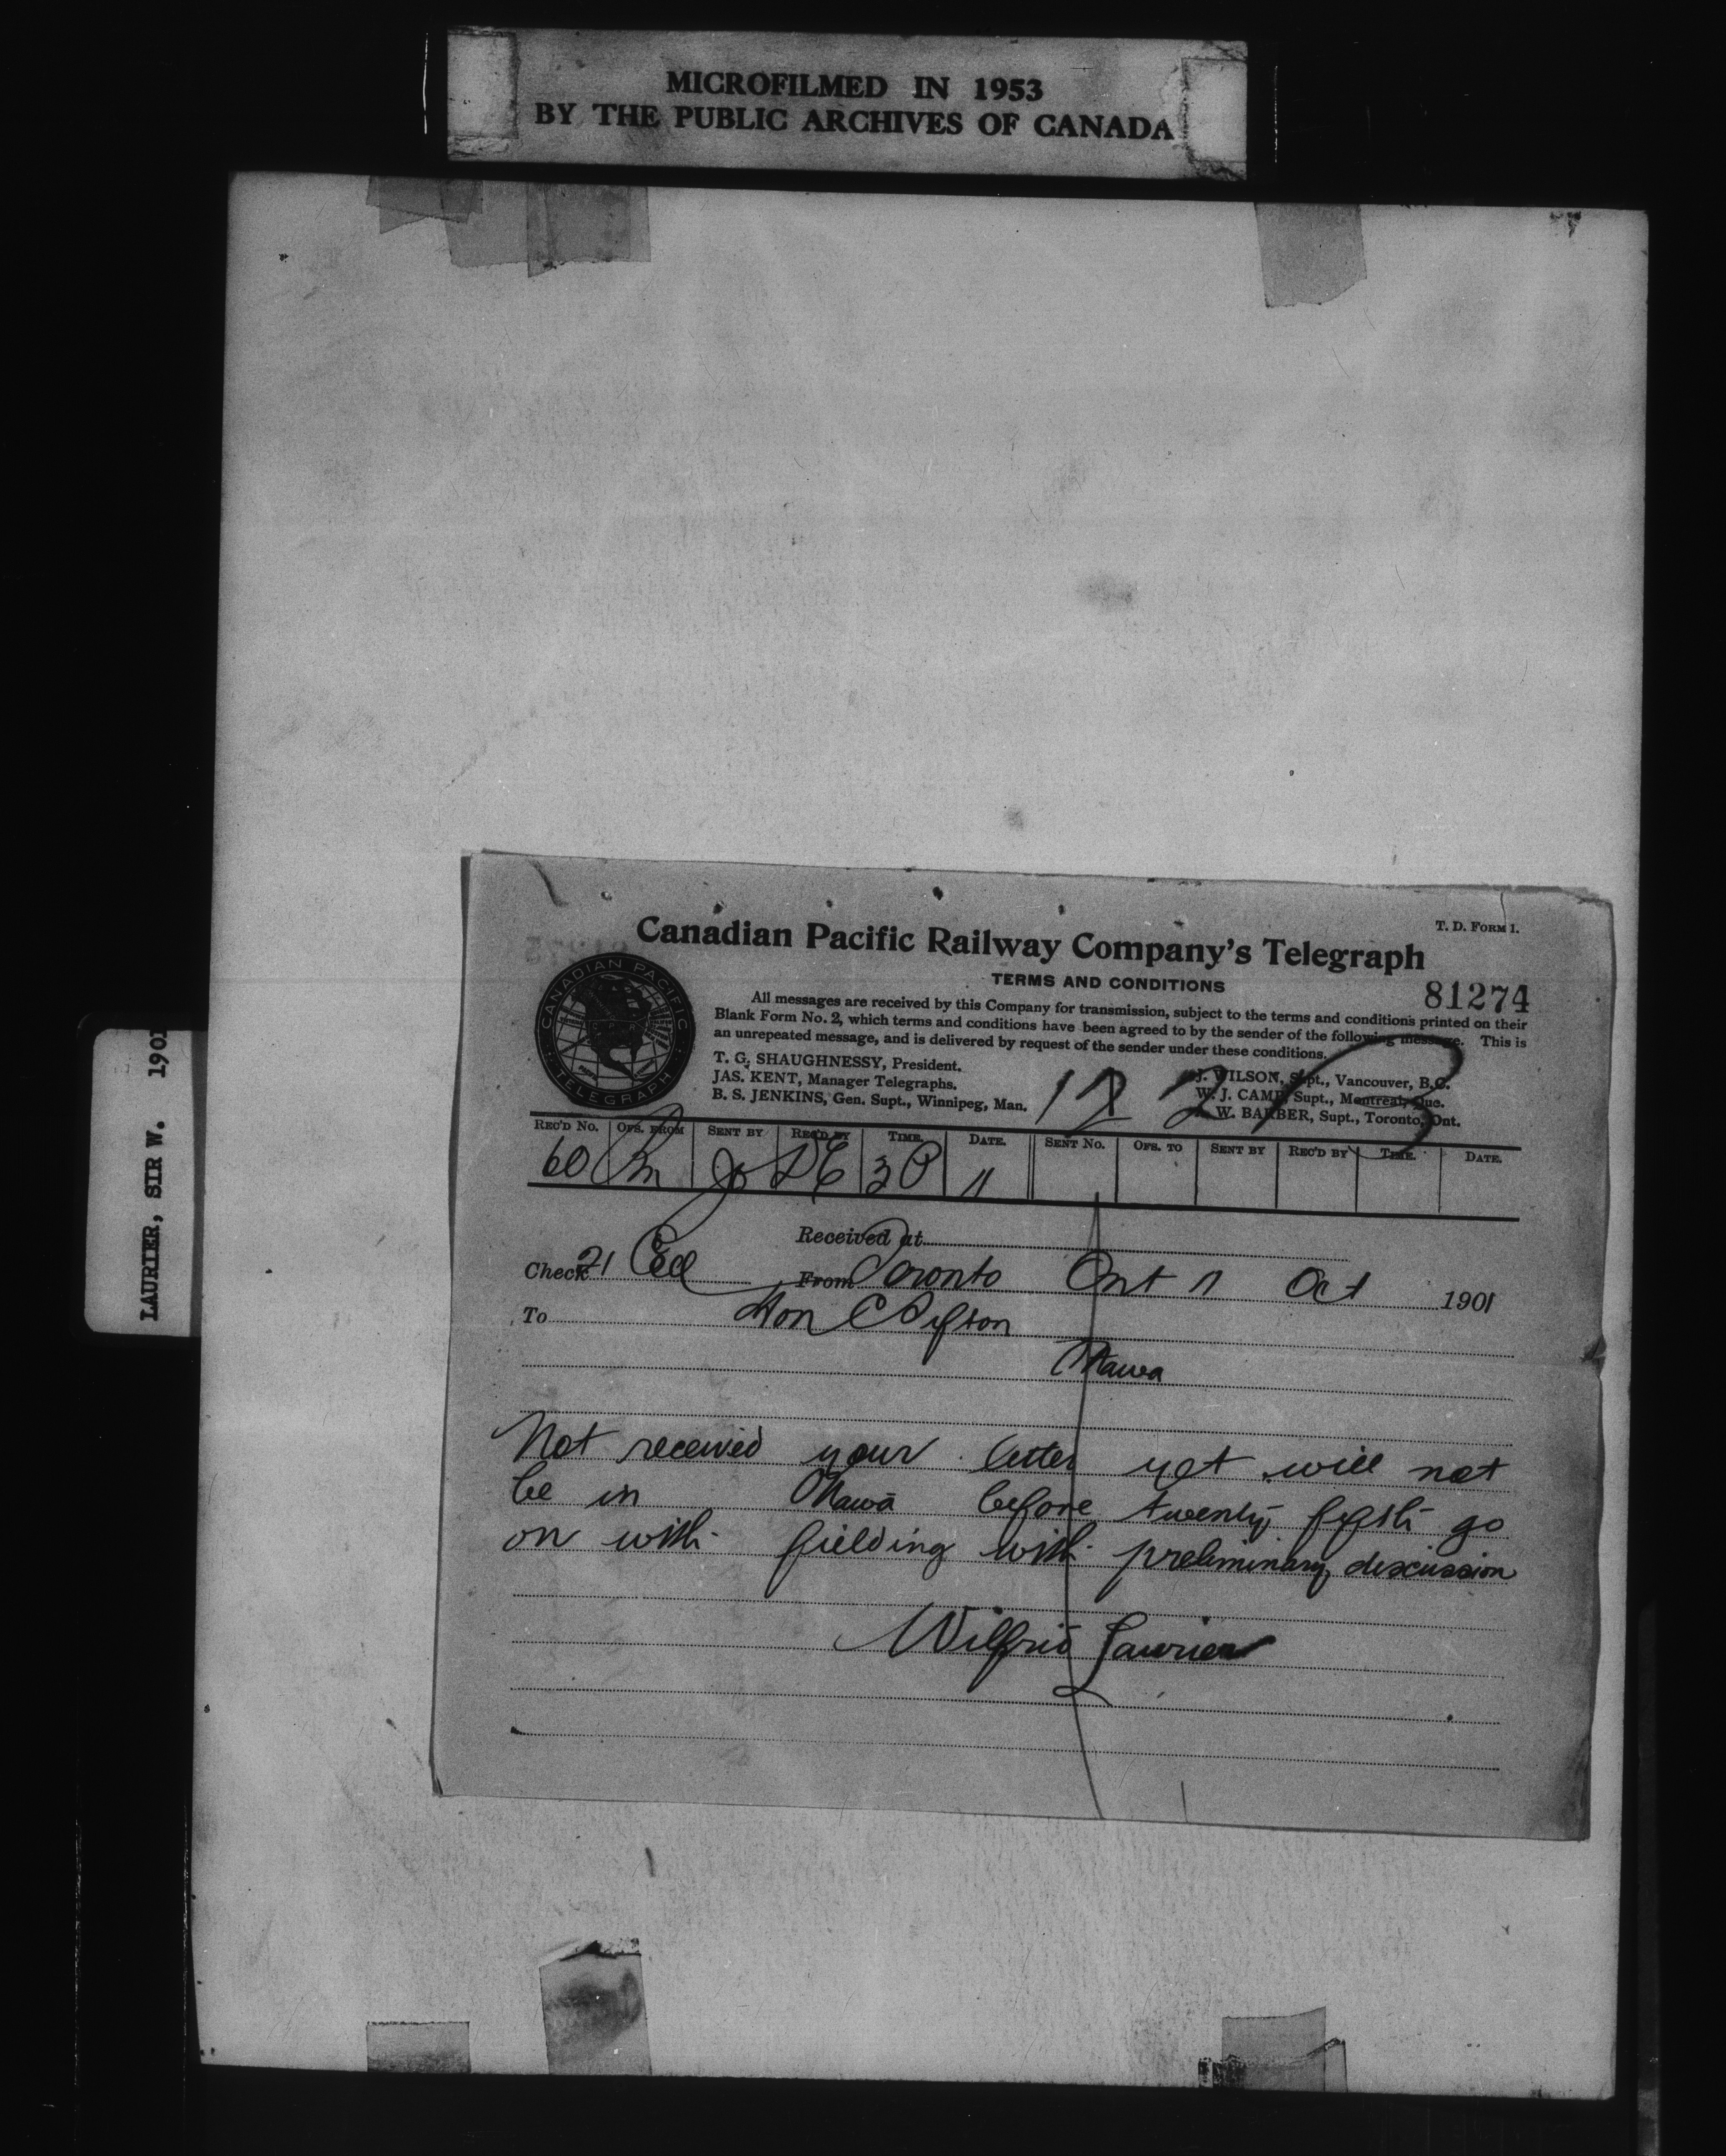 MICROFILMED IN 1953
BY THE PUBLIC ARCHIVES OF CANADA
LAURIER, SIR W. 1901
T. D. FORM 1.
Canadian Pacific Railway Company's Telegraph
TERMS AND CONDITIONS
81274
All messages are received by this Company for transmission, subject to the terms and conditions printed on their
Blank Form No. 2, which terms and conditions have been agreed to by the sender of the following message. This is
an unrepeated message, and is delivered by request of the sender under these conditions.
CANADIAN PACIFIC
TELEGRAPH
T. G. SHAUGHNESSY, President.
JAS. KENT, Manager Telegraphs.
B. S. JENKINS, Gen. Supt., Winnipeg, Man.
J. WILSON, Supt., Vancouver, B.C.
W. J. CAMP, Supt., Montreal, Que.
W. BARBER, Supt., Toronto, Ont.
REC'D No. OFS. FROM SENT BY REC'D BY TIME. DATE. SENT No. OFS. TO SENT BY REC'D BY TIME. DATE.
60 11
Received at
Check 21 From Toronto Ont 11 Oct 1901
To Hon C Sifton
Ottawa
Not received your letter yet will not
be in Ottawa before twenty fifth go
on with fielding with preliminary discussion
Wilfrid Laurier